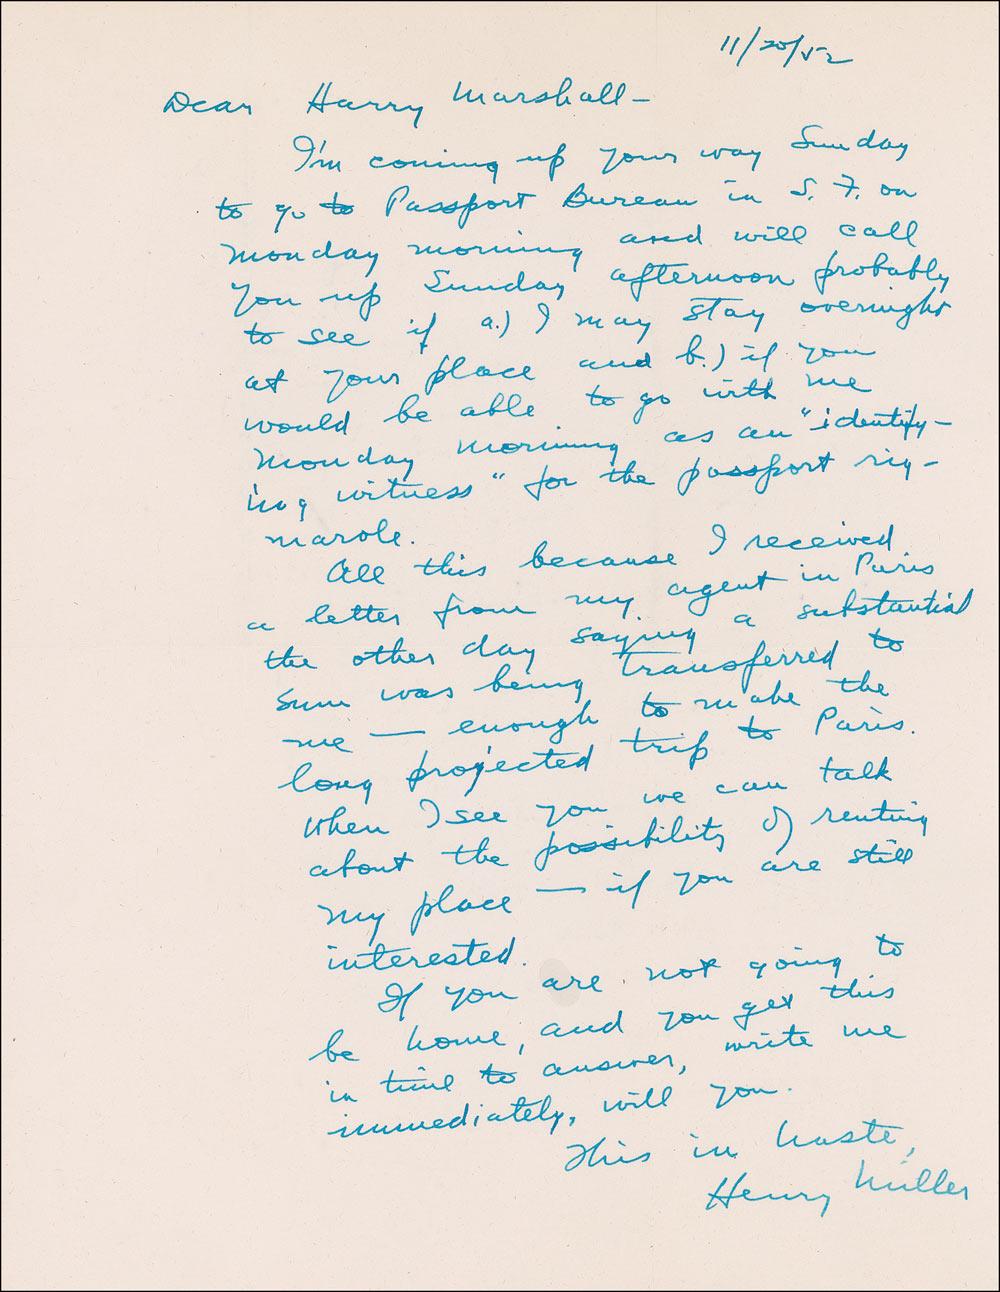 11/20/52
Dear Harry Marshall –
I'm coming up your way Sunday
to go to Passport Bureau in S. F. on
Monday morning and will call
you up Sunday afternoon probably
to see if a.) I may stay overnight
at your place and b.) if you
would be able to go with me
Monday morning as an "identify-
ing witness" for the passport rig-
marole.
All this because I received
a letter from my agent in Paris
the other day saying a substantial
sum was being transferred to
me — enough to make the
long projected trip to Paris.
When I see you we can talk
about the possibility of renting
my place — if you are still
interested.
If you are not going to
be home, and you get this
in time to answer, write me
immediately, will you.
This in haste,
Henry Miller